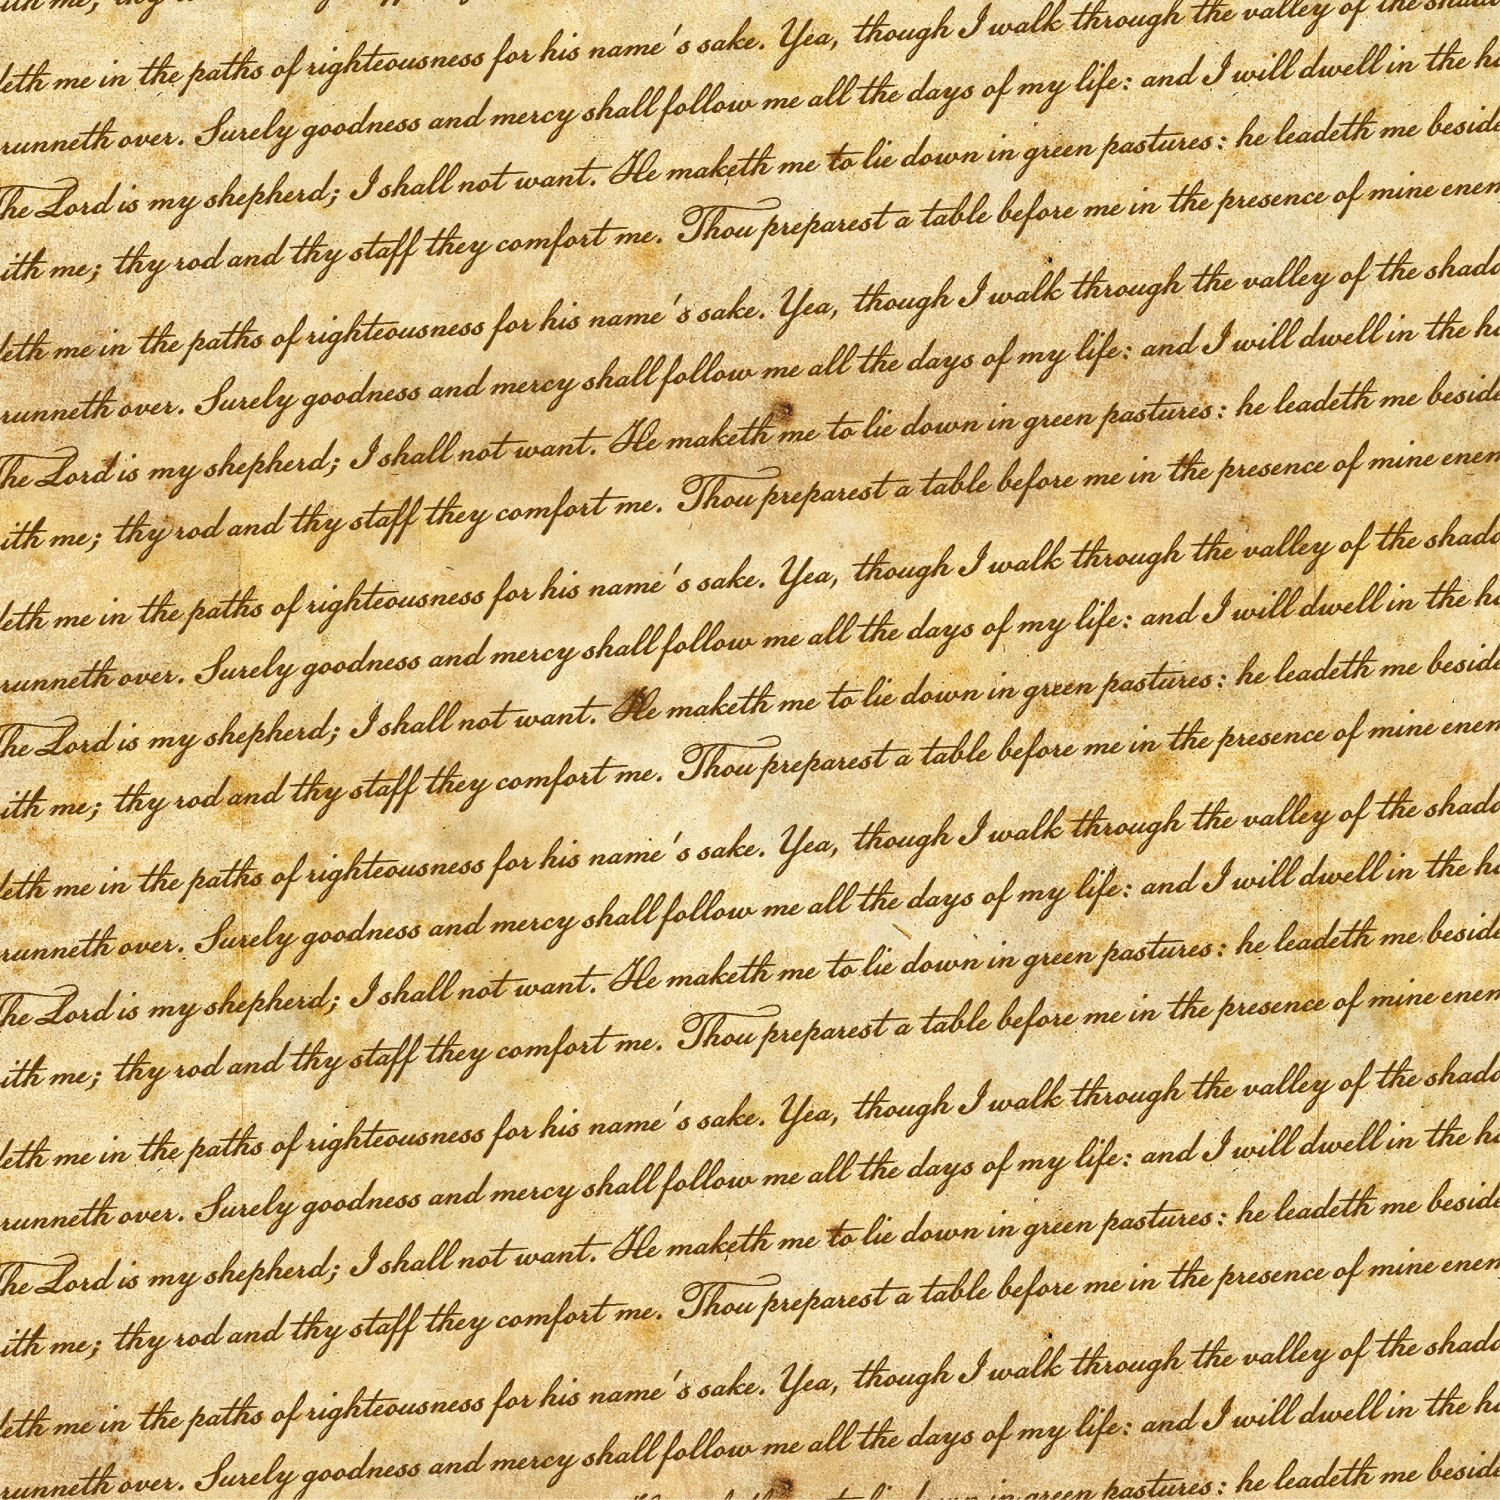 ith me; thy
leth me in the paths of righteousness for his name's sake. Yea, though I walk through the valley of the shado
runneth over. Surely goodness and mercy shall follow me all the days of my life: and I will dwell in the ho
The Lord is my shepherd; I shall not want. He maketh me to lie down in green pastures: he leadeth me beside
ith me; thy rod and thy staff they comfort me. Thou preparest a table before me in the presence of mine enem
leth me in the paths of righteousness for his name's sake. Yea, though I walk through the valley of the shado
runneth over. Surely goodness and mercy shall follow me all the days of my life: and I will dwell in the ho
The Lord is my shepherd; I shall not want. He maketh me to lie down in green pastures: he leadeth me beside
ith me; thy rod and thy staff they comfort me. Thou preparest a table before me in the presence of mine enem
leth me in the paths of righteousness for his name's sake. Yea, though I walk through the valley of the shado
runneth over. Surely goodness and mercy shall follow me all the days of my life: and I will dwell in the ho
The Lord is my shepherd; I shall not want. He maketh me to lie down in green pastures: he leadeth me beside
ith me; thy rod and thy staff they comfort me. Thou preparest a table before me in the presence of mine enem
leth me in the paths of righteousness for his name's sake. Yea, though I walk through the valley of the shado
runneth over. Surely goodness and mercy shall follow me all the days of my life: and I will dwell in the ho
The Lord is my shepherd; I shall not want. He maketh me to lie down in green pastures: he leadeth me beside
ith me; thy rod and thy staff they comfort me. Thou preparest a table before me in the presence of mine enem
leth me in the paths of righteousness for his name's sake. Yea, though I walk through the valley of the shado
runneth over. Surely goodness and mercy shall follow me all the days of my life: and I will dwell in the ho
The Lord is my shepherd; I shall not want. He maketh me to lie down in green pastures: he leadeth me beside
ith me; thy rod and thy staff they comfort me. Thou preparest a table before me in the presence of mine enem
leth me in the paths of righteousness for his name's sake. Yea, though I walk through the valley of the shado
runneth over. Surely goodness and mercy shall follow me all the days of my life: and I will dwell in the ho
in green pastures: he leadeth me beside